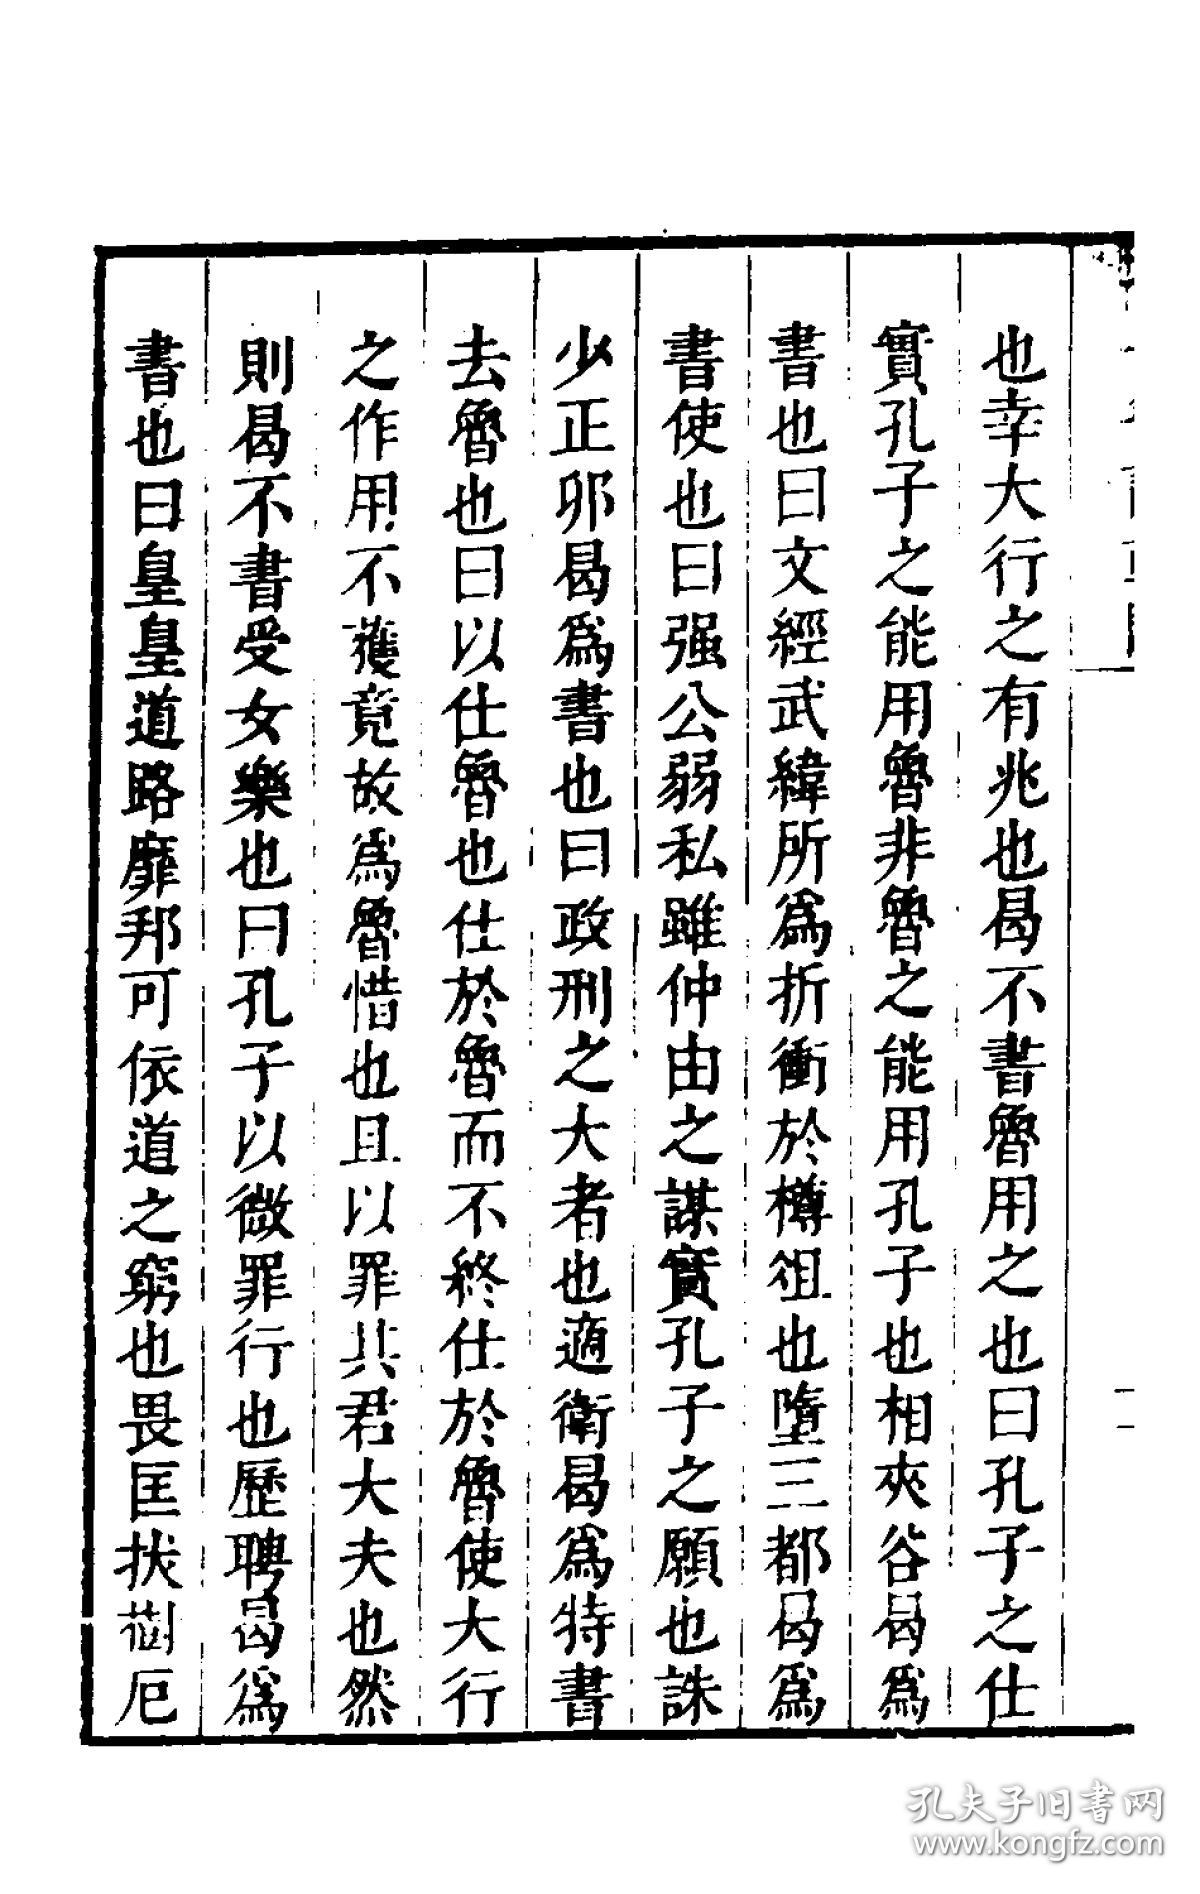 也幸大行之有兆也曷不書魯用之也曰孔子之仕
實孔子之能用魯非魯之能用孔子也相夾谷曷爲
書也曰文經武緯所爲折衝於樽俎也墮三都曷爲
書使也曰强公弱私雖仲由之謀實孔子之願也誅
少正卯曷爲書也曰政刑之大者也適衛曷爲特書
去魯也曰以仕魯也仕於魯而不終仕於魯使大行
之作用不獲竟故爲魯惜也且以罪共君大夫也然
則曷不書受女樂也曰孔子以微罪行也歷聘曷爲
書也曰皇皇道路靡邦可依道之窮也畏匡拔樹厄
孔夫子旧書网
www.kongfz.com